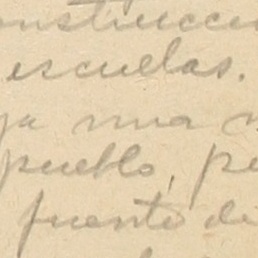 onstrucci
escuelas.
ya una
pueblo, pe
fuente de